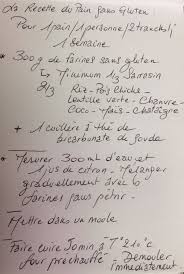 La Recette du Pain sans Gluten
Pour 1 pain / 1 personne / 2 tranches/j
1 Semaine
* 300g de farines sans gluten
↳ Minimum 1/3 Sarrasin
2/3 Riz - Pois chiche -
Lentille verte - Chanvre -
Coco - Maïs - Châtaigne
+ 1 cuillère à thé de
bicarbonate de soude
* Mesurer 300 ml d'eau et
1 jus de citron - Mélanger
graduellement avec
farines sans pétrir -
Mettre dans un moule
Faire cuire 50 min à T° 210°c
four préchauffé Démouler
immédiatement